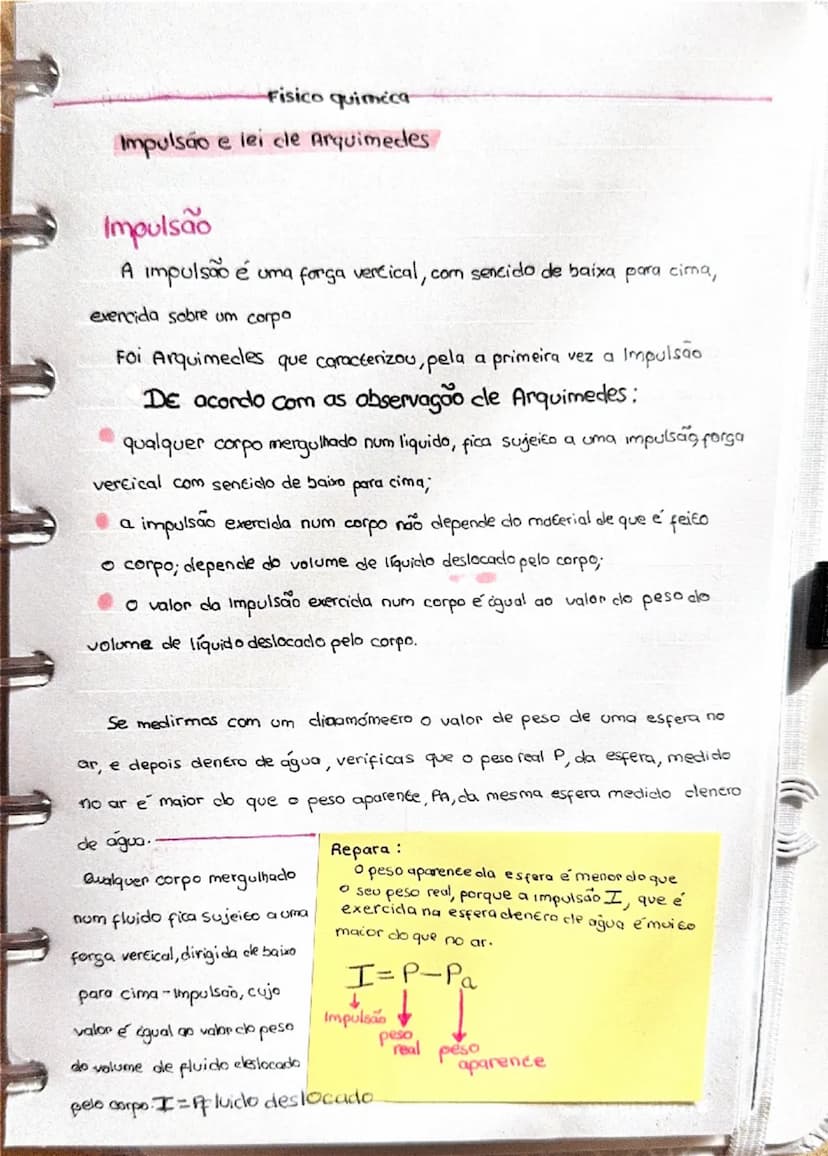 Fisico quimica
Impulsão e lei de Arquimedes
Impulsão
A impulsão é uma força vertical, com sentido de baixa para cima,
exercida sobre um corpo
Foi Arquimedes que caracterizou, pela a primeira vez a Impulsão
DE acordo com as observação de Arquimedes:
qualquer corpo mergulhado num liquido, fica sujeito a uma impulsão, força
vertical com sentido de baixo para cima;
a impulsão exercida num corpo não depende do material de que é feito
o corpo; depende do volume de líquido deslocado pelo corpo;
o valor da Impulsão exercida num corpo é igual ao valor do peso do
volume de líquido deslocado pelo corpo.
Se medirmos com um dinamómetro o valor de peso de uma esfera no
ar, e depois dentro de água, verificas que o peso real P, da esfera, medido
no ar é maior do que o peso aparente, PA, da mesma esfera medido dentro
de água.
Qualquer corpo mergulhado
num fluido fica sujeito a uma
força vertical, dirigida de baixo
para cima - Impulsão, cujo
valor é igual ao valor do peso
do volume de fluido deslocado
pelo corpo. I = Pfluido deslocado
Repara:
O peso aparente da esfera é menor do que
o seu peso real, porque a impulsão I, que é
exercida na esfera dentro de água é muito
maior do que no ar.
I = P - Pa
Impulsão
peso
real
peso
aparente